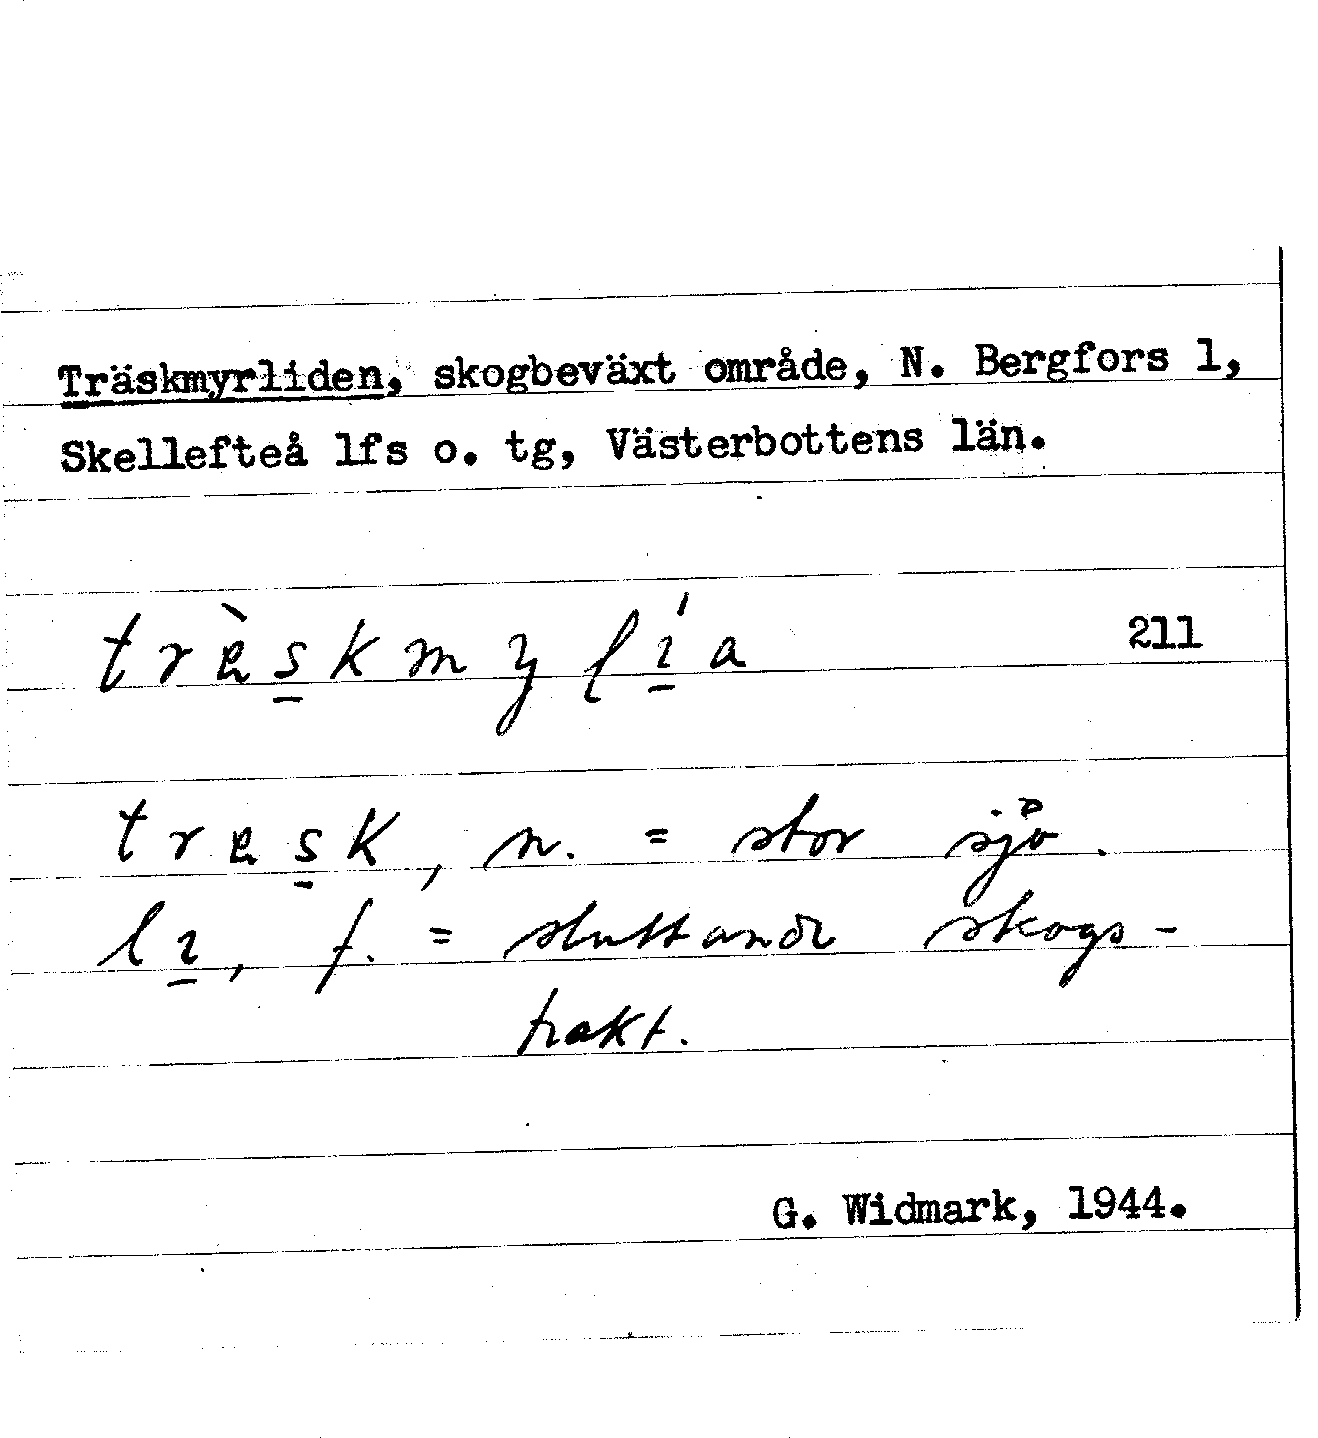 Träskmyrliden, skogbeväxt område, N. Bergfors 1,
Skellefteå lfs o. tg, Västerbottens län.
trèskmylía 211
tresk, n. = stor sjö.
lı, f. = sluttande skogs-
trakt.
G. Widmark, 1944.